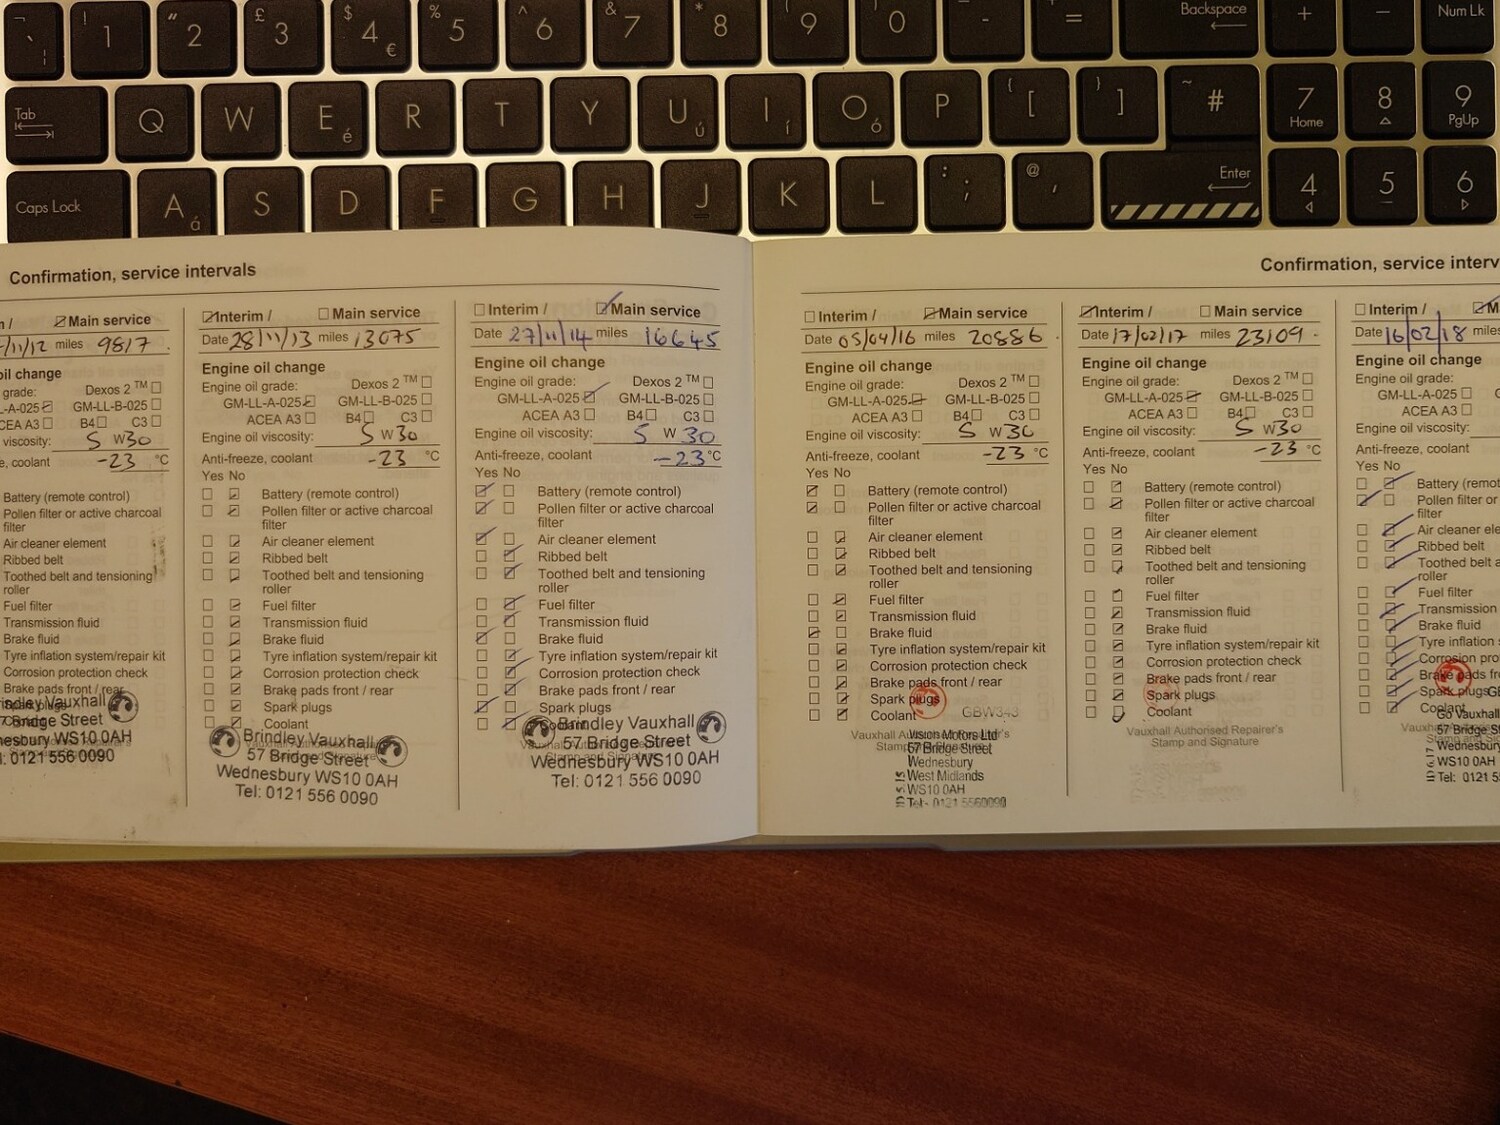 ¬ ` ¦
! 1
" 2
£ 3
$ 4 €
% 5
^ 6
& 7
* 8
( 9
) 0
_ -
+ =
Backspace
+
−
Num Lk
Tab
Q W E é R T Y U ú I í O ó P { [ } ] ~ #
7 Home
8
9 PgUp
Caps Lock
A á S D F G H J K L : ; @ '
Enter
4
5
6
Confirmation, service intervals
/ Main service
/11/12 miles 9817
oil change
grade: Dexos 2 TM
L-A-025 GM-LL-B-025
CEA A3 B4 C3
viscosity: 5 W30
e, coolant -23 °C
Battery (remote control)
Pollen filter or active charcoal
filter
Air cleaner element
Ribbed belt
Toothed belt and tensioning
roller
Fuel filter
Transmission fluid
Brake fluid
Tyre inflation system/repair kit
Corrosion protection check
Brake pads front / rear
Spark plugs
Coolant
rindley Vauxhall
7 Bridge Street
nesbury WS10 0AH
l: 0121 556 0090
Interim / Main service
Date 28/11/13 miles 13075
Engine oil change
Engine oil grade: Dexos 2 TM
GM-LL-A-025 GM-LL-B-025
ACEA A3 B4 C3
Engine oil viscosity: 5 W30
Anti-freeze, coolant -23 °C
Yes No
Battery (remote control)
Pollen filter or active charcoal
filter
Air cleaner element
Ribbed belt
Toothed belt and tensioning
roller
Fuel filter
Transmission fluid
Brake fluid
Tyre inflation system/repair kit
Corrosion protection check
Brake pads front / rear
Spark plugs
Coolant
Brindley Vauxhall
57 Bridge Street
Wednesbury WS10 0AH
Tel: 0121 556 0090
Interim / Main service
Date 27/11/14 miles 16645
Engine oil change
Engine oil grade: Dexos 2 TM
GM-LL-A-025 GM-LL-B-025
ACEA A3 B4 C3
Engine oil viscosity: 5 W 30
Anti-freeze, coolant -23 °C
Yes No
Battery (remote control)
Pollen filter or active charcoal
filter
Air cleaner element
Ribbed belt
Toothed belt and tensioning
roller
Fuel filter
Transmission fluid
Brake fluid
Tyre inflation system/repair kit
Corrosion protection check
Brake pads front / rear
Spark plugs
Coolant
Brindley Vauxhall
57 Bridge Street
Wednesbury WS10 0AH
Tel: 0121 556 0090
Confirmation, service interv
Interim / Main service
Date 05/04/16 miles 20886
Engine oil change
Engine oil grade: Dexos 2 TM
GM-LL-A-025 GM-LL-B-025
ACEA A3 B4 C3
Engine oil viscosity: 5 W30
Anti-freeze, coolant -23 °C
Yes No
Battery (remote control)
Pollen filter or active charcoal
filter
Air cleaner element
Ribbed belt
Toothed belt and tensioning
roller
Fuel filter
Transmission fluid
Brake fluid
Tyre inflation system/repair kit
Corrosion protection check
Brake pads front / rear
Spark plugs
Coolant GBW343
Vauxhall Authorised Repairer's
Stamp and Signature
Vision Motors Ltd
57 Bridge Street
Wednesbury
West Midlands
WS10 0AH
Tel:- 0121 5560090
Interim / Main service
Date 17/02/17 miles 23109
Engine oil change
Engine oil grade: Dexos 2 TM
GM-LL-A-025 GM-LL-B-025
ACEA A3 B4 C3
Engine oil viscosity: 5 W30
Anti-freeze, coolant -23 °C
Yes No
Battery (remote control)
Pollen filter or active charcoal
filter
Air cleaner element
Ribbed belt
Toothed belt and tensioning
roller
Fuel filter
Transmission fluid
Brake fluid
Tyre inflation system/repair kit
Corrosion protection check
Brake pads front / rear
Spark plugs
Coolant
Vauxhall Authorised Repairer's
Stamp and Signature
Interim / M
Date 16/02/18 miles
Engine oil change
Engine oil grade:
GM-LL-A-025
ACEA A3
Engine oil viscosity:
Anti-freeze, coolant
Yes No
Battery (remot
Pollen filter or
filter
Air cleaner elem
Ribbed belt
Toothed belt a
roller
Fuel filter
Transmission
Brake fluid
Tyre inflation s
Corrosion pro
Brake pads fro
Spark plugs GB
Coolant
Vauxhall Authorised
Go Vauxhall
57 Bridge St
Wednesbury
West Midla
WS10 0AH
Tel: 0121 5